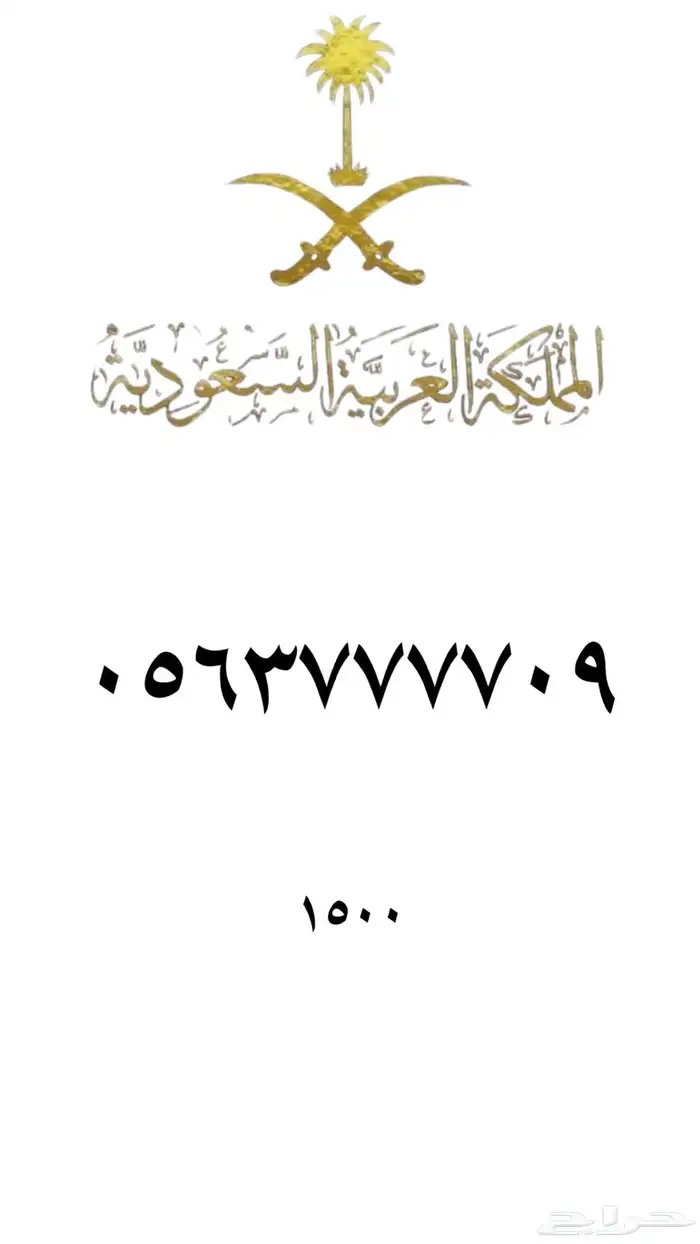 المملكة العربية السعودية
٠٥٦٣٧٧٧٧٠٩
١٥٠٠
حراج